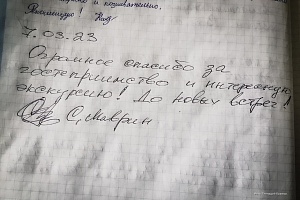 и познавательно.
Рекомендую!
7.03.23
Огромное спасибо за
гостеприимство и интересную
экскурсию! До новых встреч!
С. Макрин